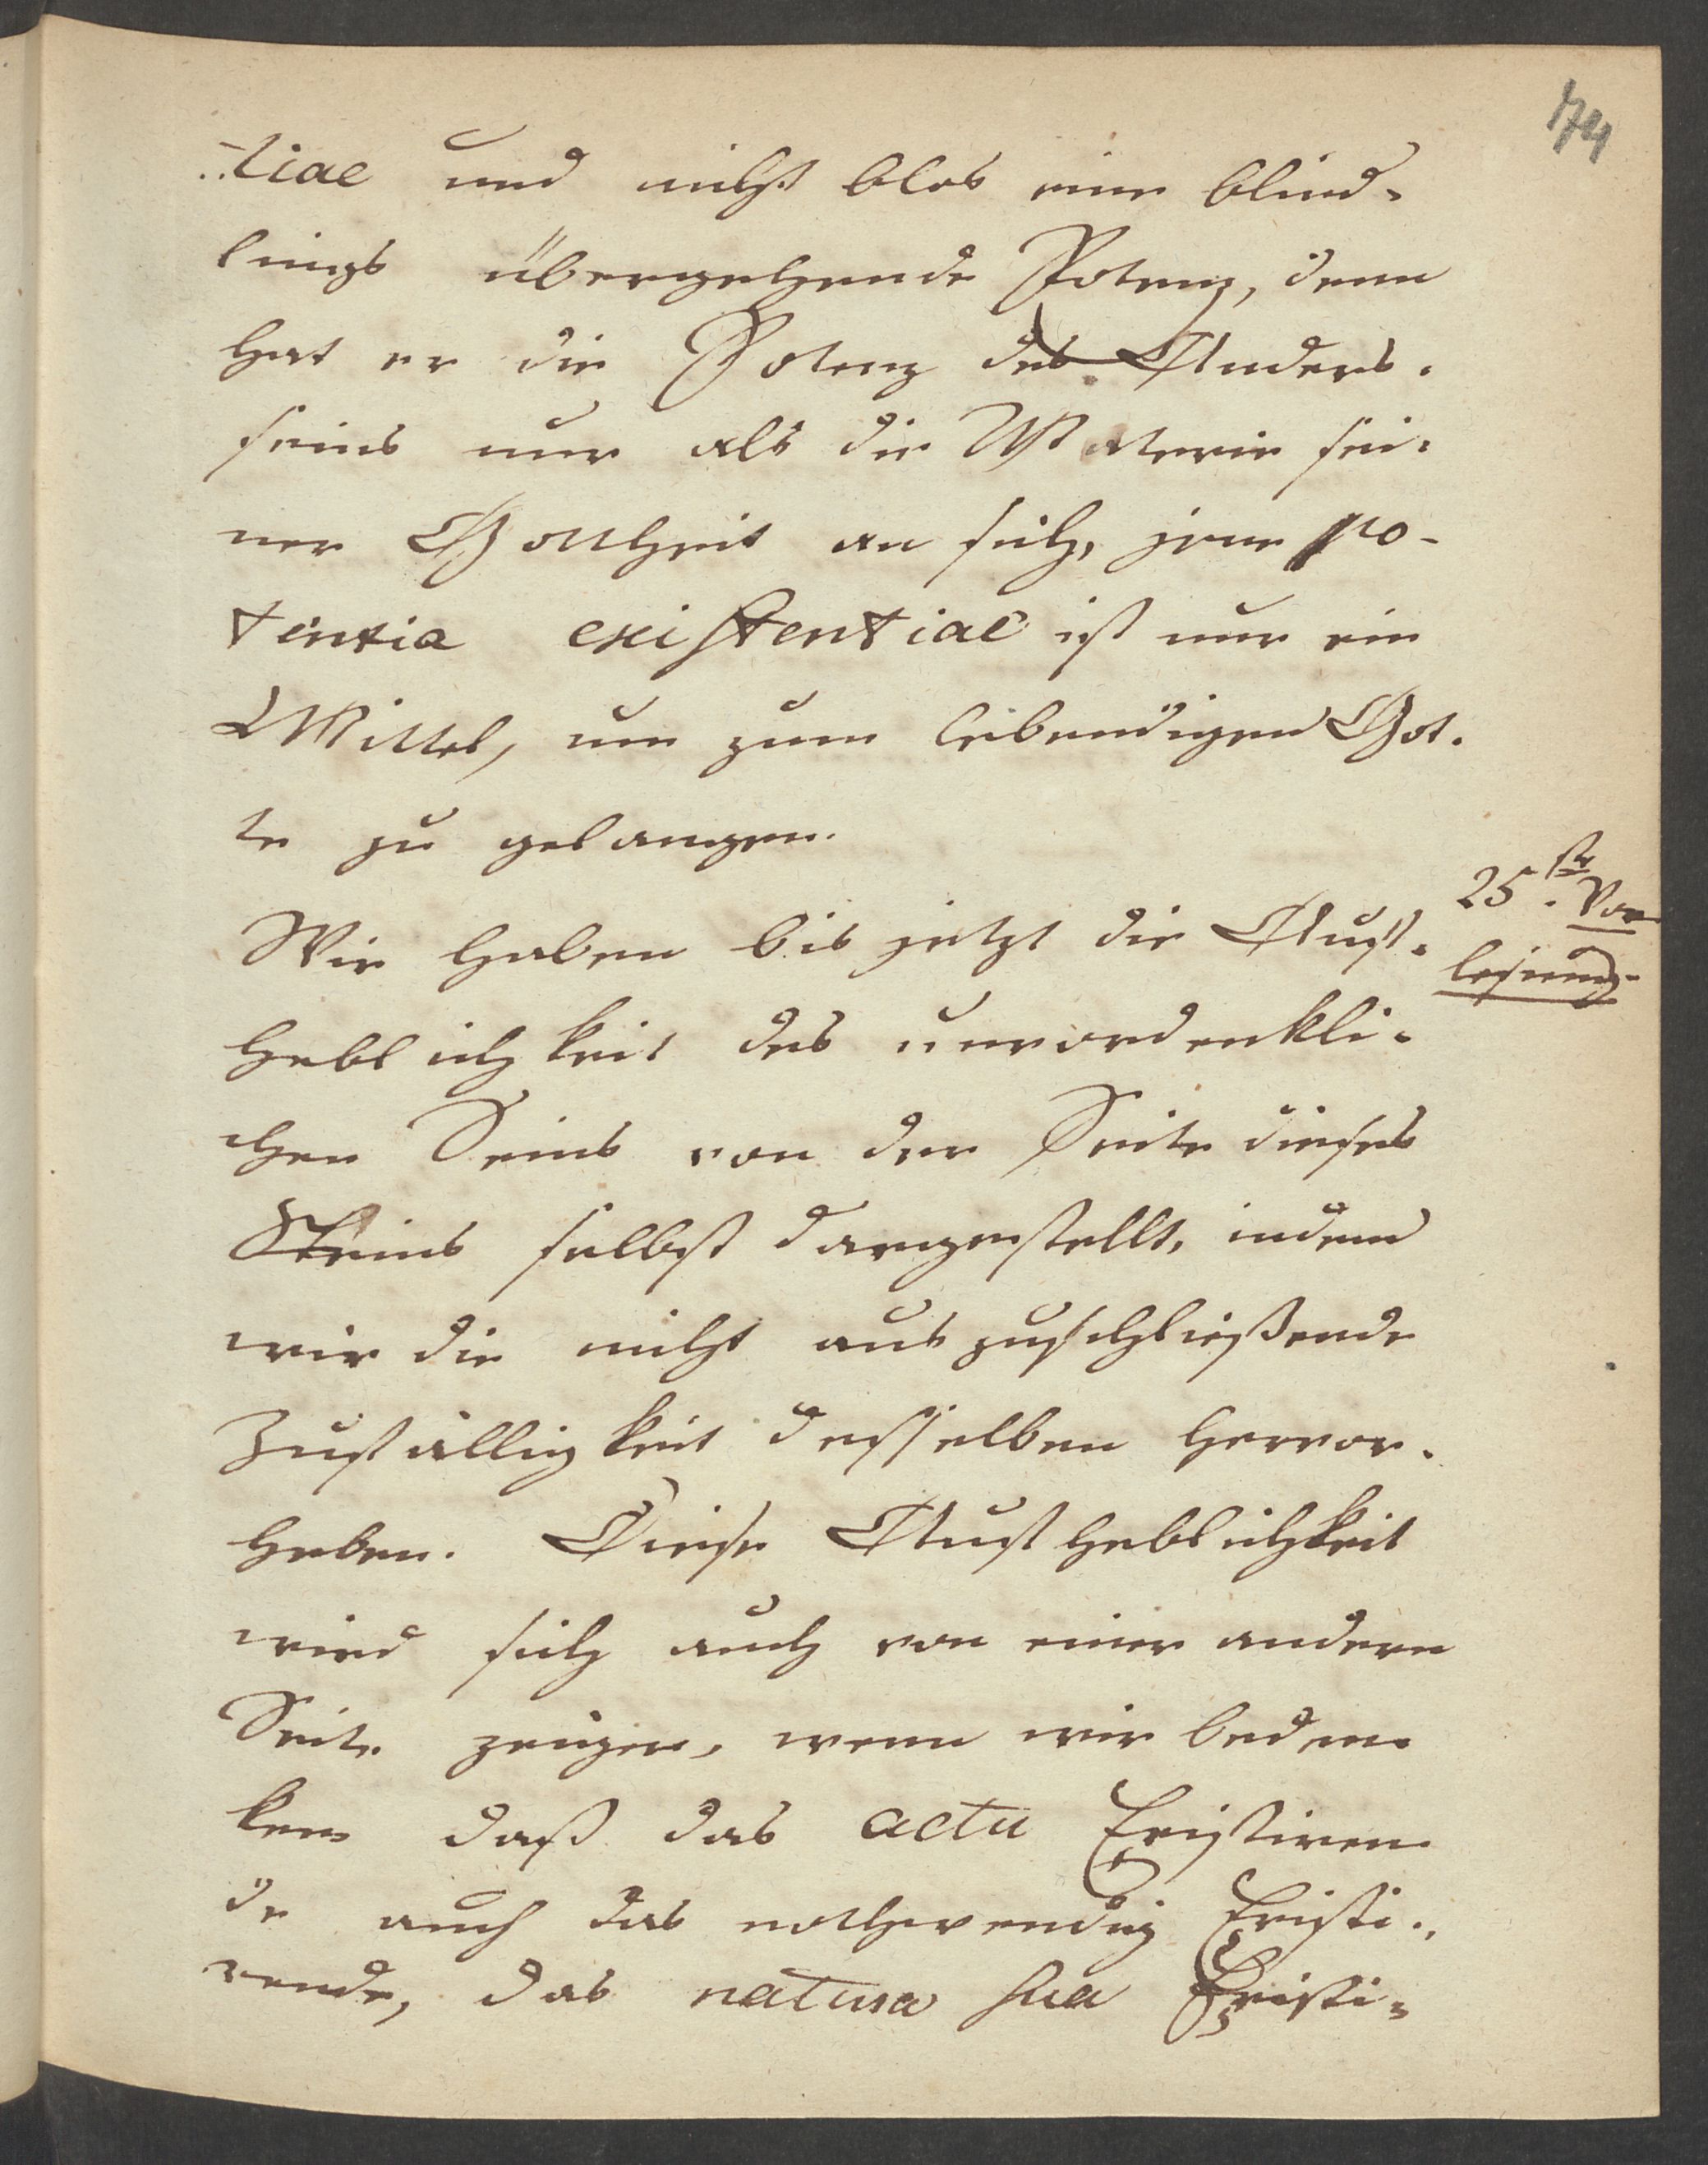 174
-tiae und nicht blos eine blind-
lings übergehende Potenz, denn
hat er die Potenz des Anders-
seins nur als die Materie sei-
ner Gottheit an sich, jene po-
tentia existentiae ist nur ein
Mittel, um zum lebendigen Got-
te zu gelangen.
25ste Vor
lesung.
Wir haben bis jetzt die Auf-
heblichkeit des unvordenkli-
chen Seins von der Seite dieses
Seins selbst dargestellt, indem
wir die nicht auszuschließende
Zufälligkeit desselben hervor-
heben. Diese Aufheblichkeit
wird sich auch von einer andern
Seite zeigen, wenn wir beden-
ken daß das actu Existiren
de auch das nothwendig Existi-
rende, das natura sua Existi-